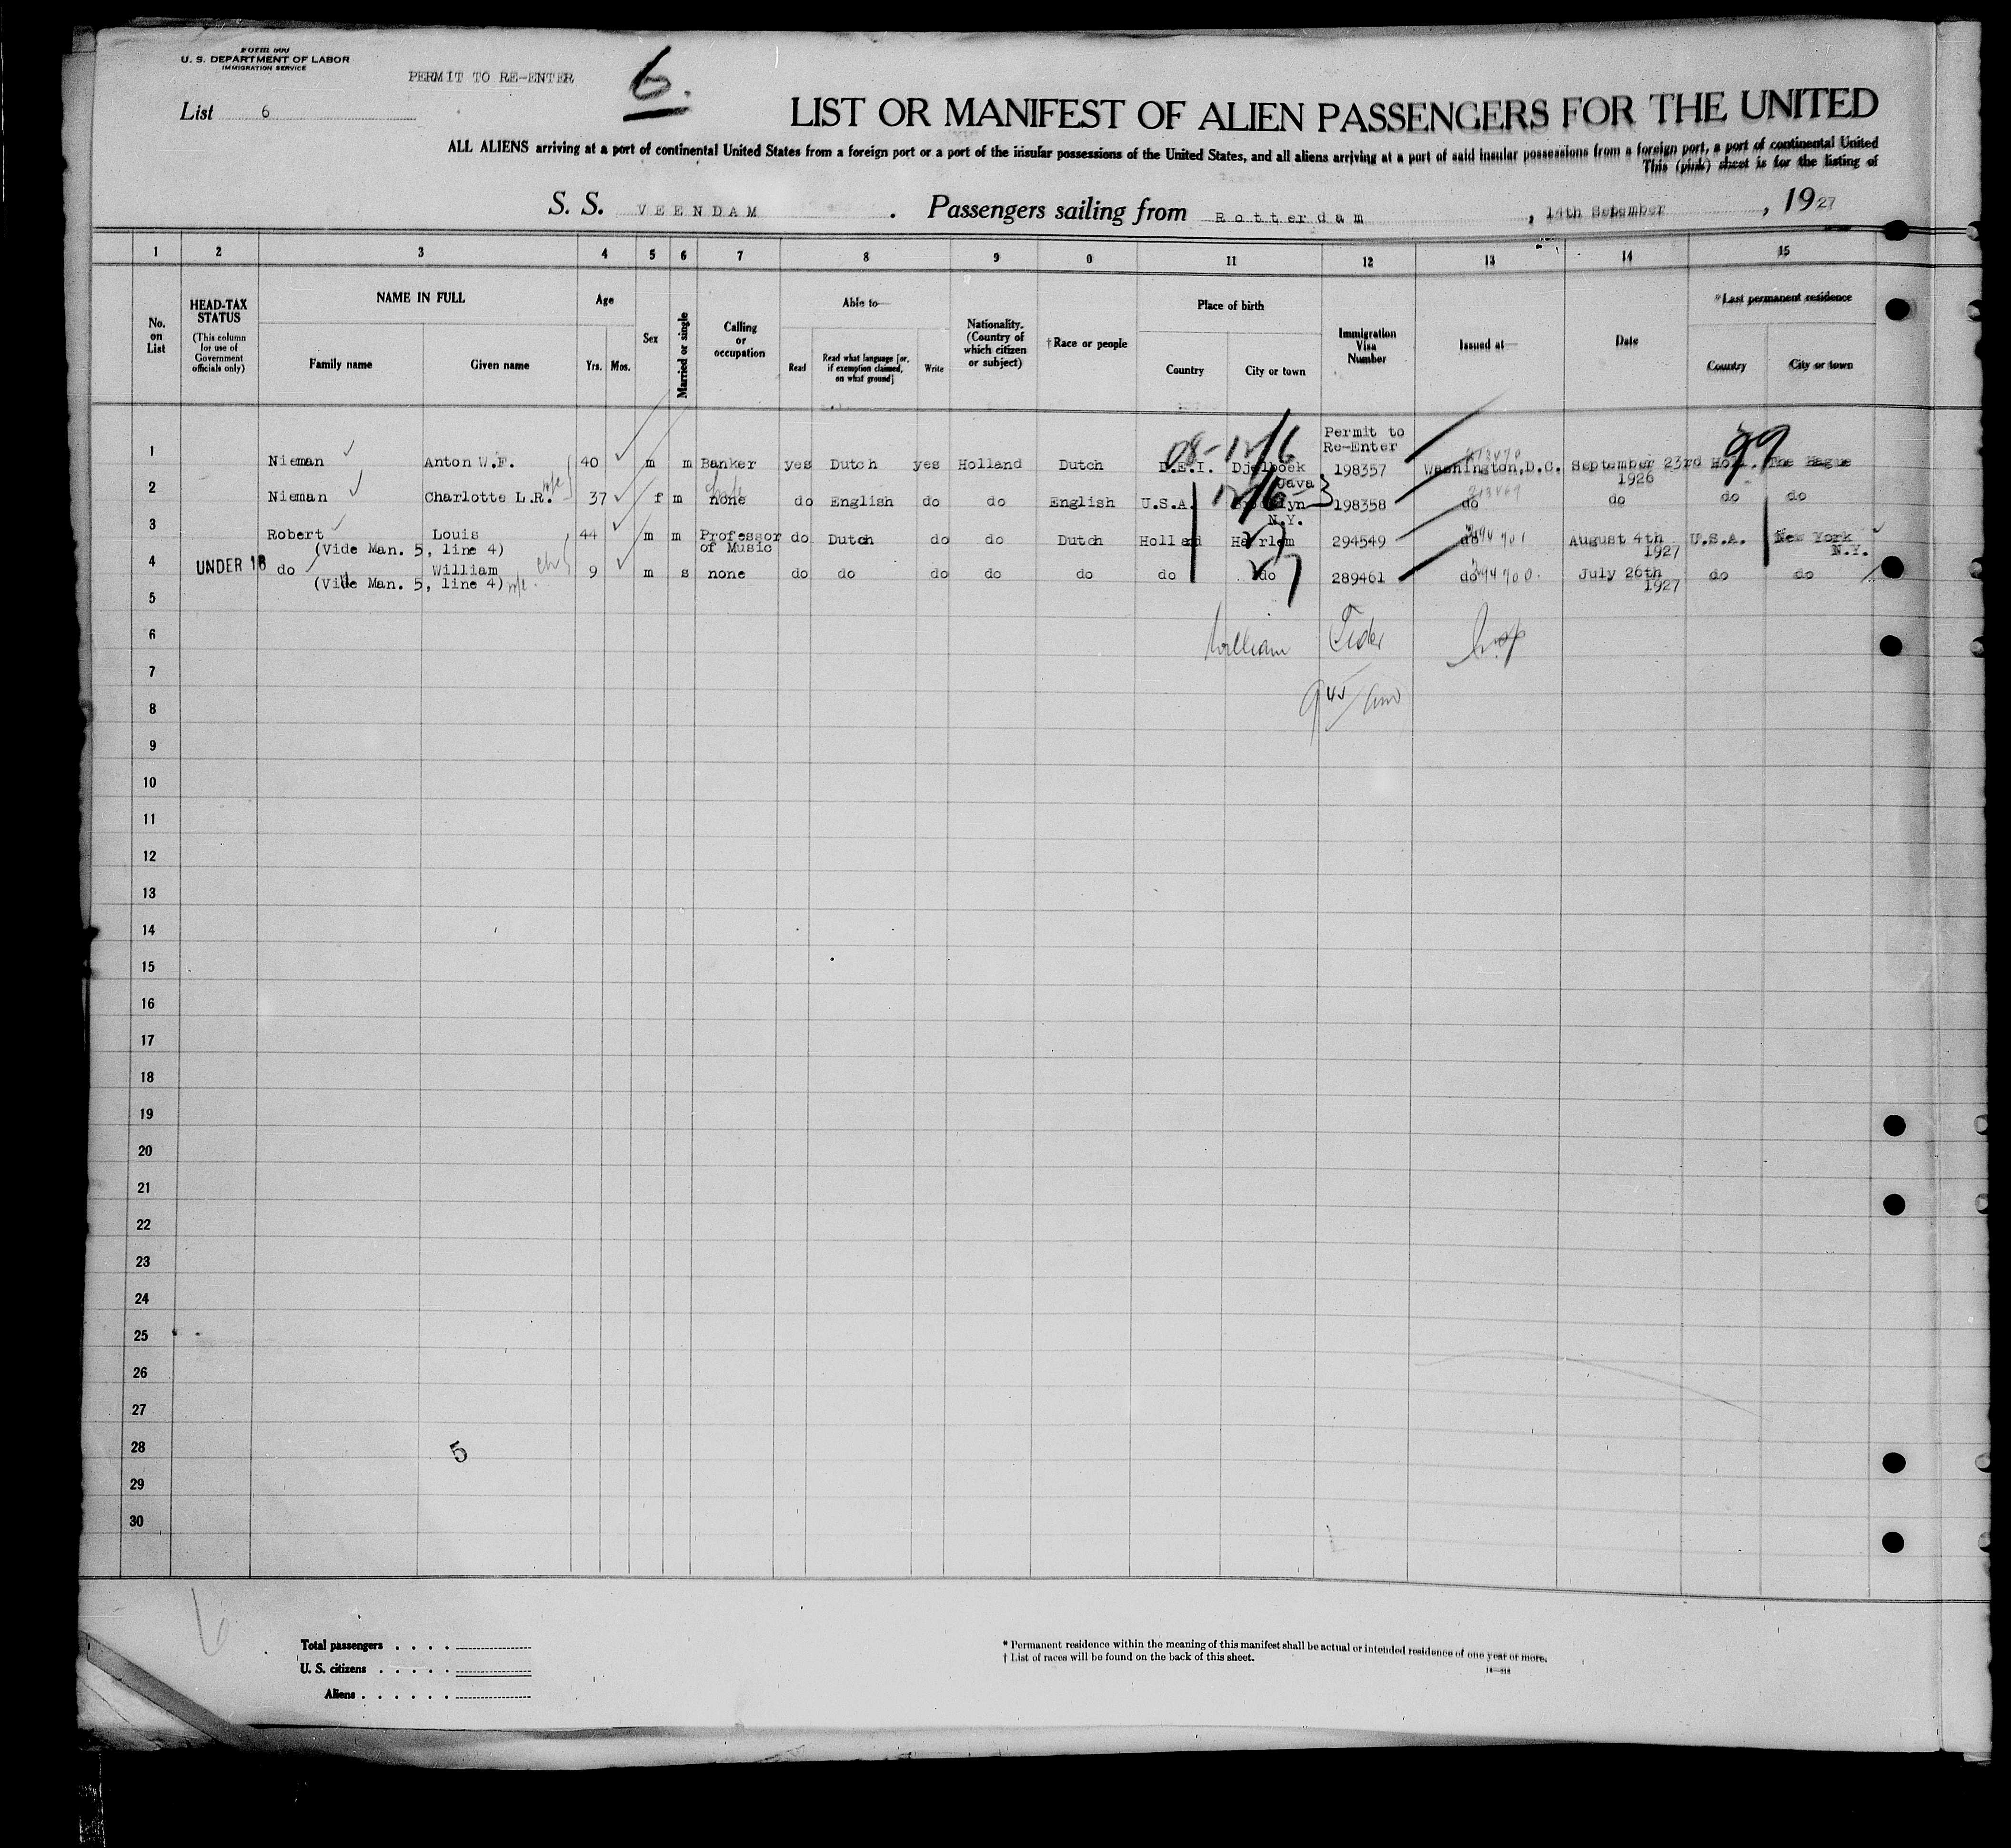 Form 500
U. S. DEPARTMENT OF LABOR
IMMIGRATION SERVICE
PERMIT TO RE-ENTER
6.
List 6
LIST OR MANIFEST OF ALIEN PASSENGERS FOR THE UNITED
ALL ALIENS arriving at a port of continental United States from a foreign port or a port of the insular possessions of the United States, and all aliens arriving at a port of said insular possessions from a foreign port, a port of continental United
This (pink) sheet is for the listing of
S. S. VEENDAM . Passengers sailing from Rotterdam , 14th September , 1927
1 2 3 4 5 6 7 8 9 0 11 12 13 14 15
No. on List
HEAD-TAX STATUS
(This column for use of Government officials only)
NAME IN FULL
Family name Given name
Age
Yrs. Mos.
Sex
Married or single
Calling or occupation
Able to—
Read Read what language [or, if exemption claimed, on what ground] Write
Nationality. (Country of which citizen or subject)
†Race or people
Place of birth
Country City or town
Immigration Visa Number
Issued at—
Date
*Last permanent residence
Country City or town
Permit to Re-Enter
08-12/6 99
1 Nieman Anton W.F. 40 m m Banker yes Dutch yes Holland Dutch D.E.I. Djelboek Java 198357 Washington,D.C. September 23rd 1926 Holl. The Hague
2 Nieman Charlotte L.R. 37 f m none do English do do English U.S.A. Brooklyn N.Y. 198358 do do do do
3 Robert Louis 44 m m Professor of Music do Dutch do do Dutch Holland Haarlem 294549 do August 4th 1927 U.S.A. New York N.Y.
(Vide Man. 5, line 4)
4 UNDER 16 do William 9 m s none do do do do do do do 289461 do July 26th 1927 do do
(Vide Man. 5, line 4)
5
6 William
7
8
9
10
11
12
13
14
15
16
17
18
19
20
21
22
23
24
25
26
27
28 5
29
30
Total passengers . . . .
U. S. citizens . . . . .
Aliens . . . . . .
* Permanent residence within the meaning of this manifest shall be actual or intended residence of one year or more.
† List of races will be found on the back of this sheet.